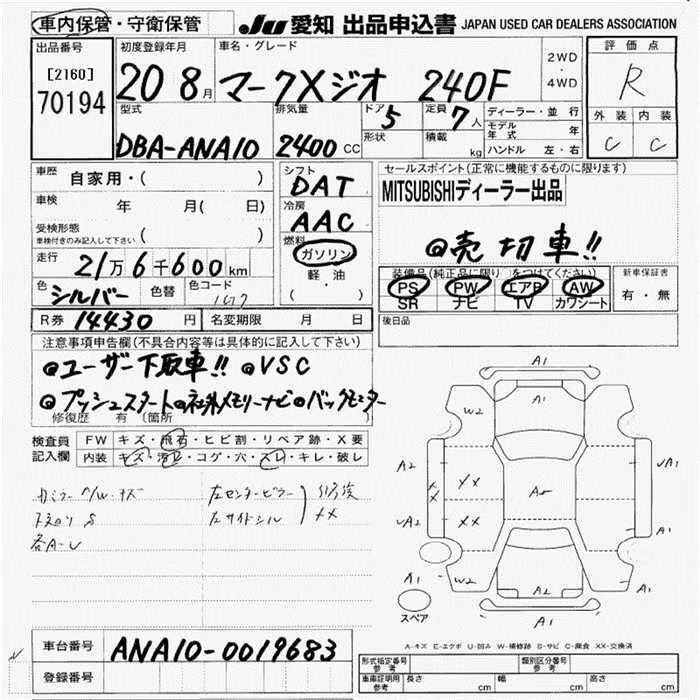 車内保管・守衛保管
JU 愛知 出品申込書 JAPAN USED CAR DEALERS ASSOCIATION
出品番号 初度登録年月 車名・グレード 評価点
[2160] 20 8月 マークXジオ 240F 2WD・4WD R
70194
型式 排気量 ドア 定員 ディーラー・並行 外装 内装
DBA-ANA10 2400CC 5 7人 モデル年式 年 C C
形状 積載 kg ハンドル 左・右
車歴 自家用・( ) シフト DAT セールスポイント(正常に機能するものに限ります)
車検 年 月( 日) 冷房 AAC MITSUBISHIディーラー出品
受検形態 車検付きのみ記入して下さい ( ) 燃料 ガソリン @売切車!!
走行 21万6千600km 軽油 ( ) 装備品(純正品に限り○をつけてください) 新車保証書
PS PW エアB AW 有・無
色 シルバー 色替 色コード SR ナビ TV カワシート
R券 14430円 名変期限 月 日 後日品
注意事項申告欄(不具合内容等は具体的に記入して下さい)
@ユーザー下取車!! @VSC
@プッシュスタート@社外メモリーナビ@バックモニター
修復歴 有 (箇所 )
検査員記入欄 FW キズ・飛石・ヒビ割・リペア跡・X要
内装 キズ・汚レ・コゲ・穴・スレ・キレ・破レ
左センターピラー
左サイドシル XX
A1
W2 A1
A2 XX XX A2 A1
A2 XX A1
A1 W2 A2 A1
スペア A1
A-キズ E-エクボ U-凹み W-補修跡 S-サビ C-腐食 XX-交換済
車台番号 ANA10-0019683
登録番号
形式指定番号 参考 類別区分番号 参考
車庫証明用 参考 長さ cm 幅 cm 高さ cm